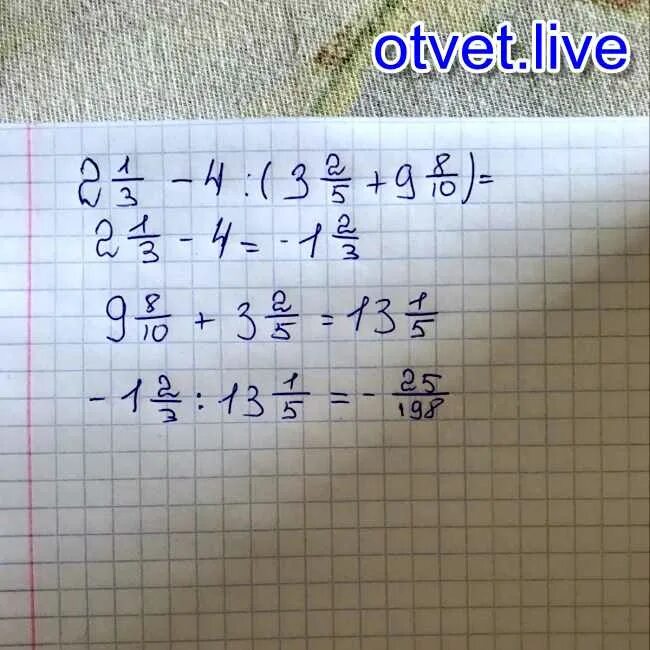 otvet.live
2 1/3 - 4 : ( 3 2/5 + 9 8/10 ) =
2 1/3 - 4 = - 1 2/3
9 8/10 + 3 2/5 = 13 1/5
- 1 2/3 : 13 1/5 = - 25/198